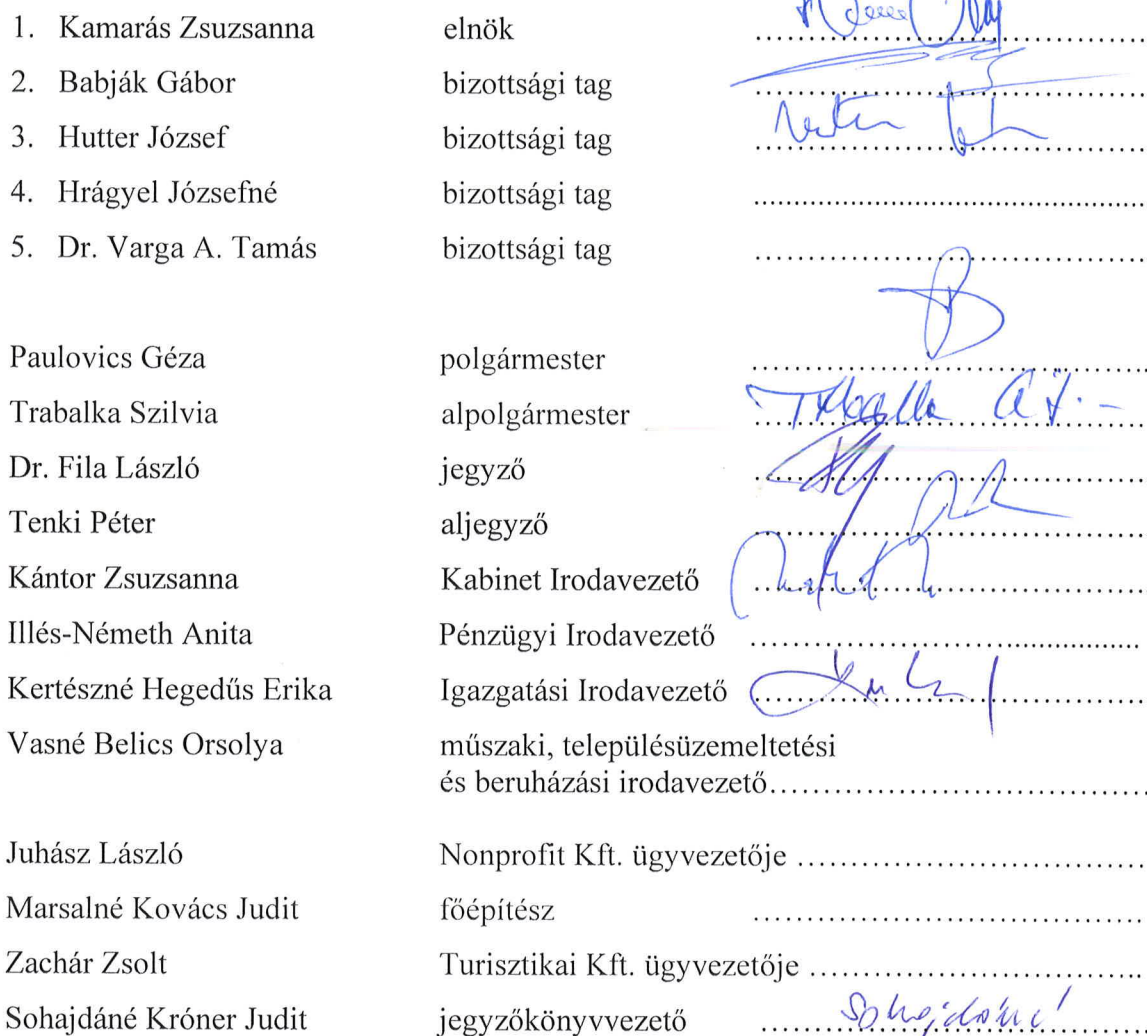 1. Kamarás Zsuzsanna elnök ........................................
2. Babják Gábor bizottsági tag ........................................
3. Hutter József bizottsági tag ........................................
4. Hrágyel Józsefné bizottsági tag ........................................
5. Dr. Varga A. Tamás bizottsági tag ........................................
Paulovics Géza polgármester ........................................
Trabalka Szilvia alpolgármester ........................................
Dr. Fila László jegyző ........................................
Tenki Péter aljegyző ........................................
Kántor Zsuzsanna Kabinet Irodavezető ........................................
Illés-Németh Anita Pénzügyi Irodavezető ........................................
Kertészné Hegedűs Erika Igazgatási Irodavezető ........................................
Vasné Belics Orsolya műszaki, településüzemeltetési
és beruházási irodavezető........................................
Juhász László Nonprofit Kft. ügyvezetője ........................................
Marsalné Kovács Judit főépítész ........................................
Zachár Zsolt Turisztikai Kft. ügyvezetője ........................................
Sohajdáné Króner Judit jegyzőkönyvvezető ........ Sohajdáné